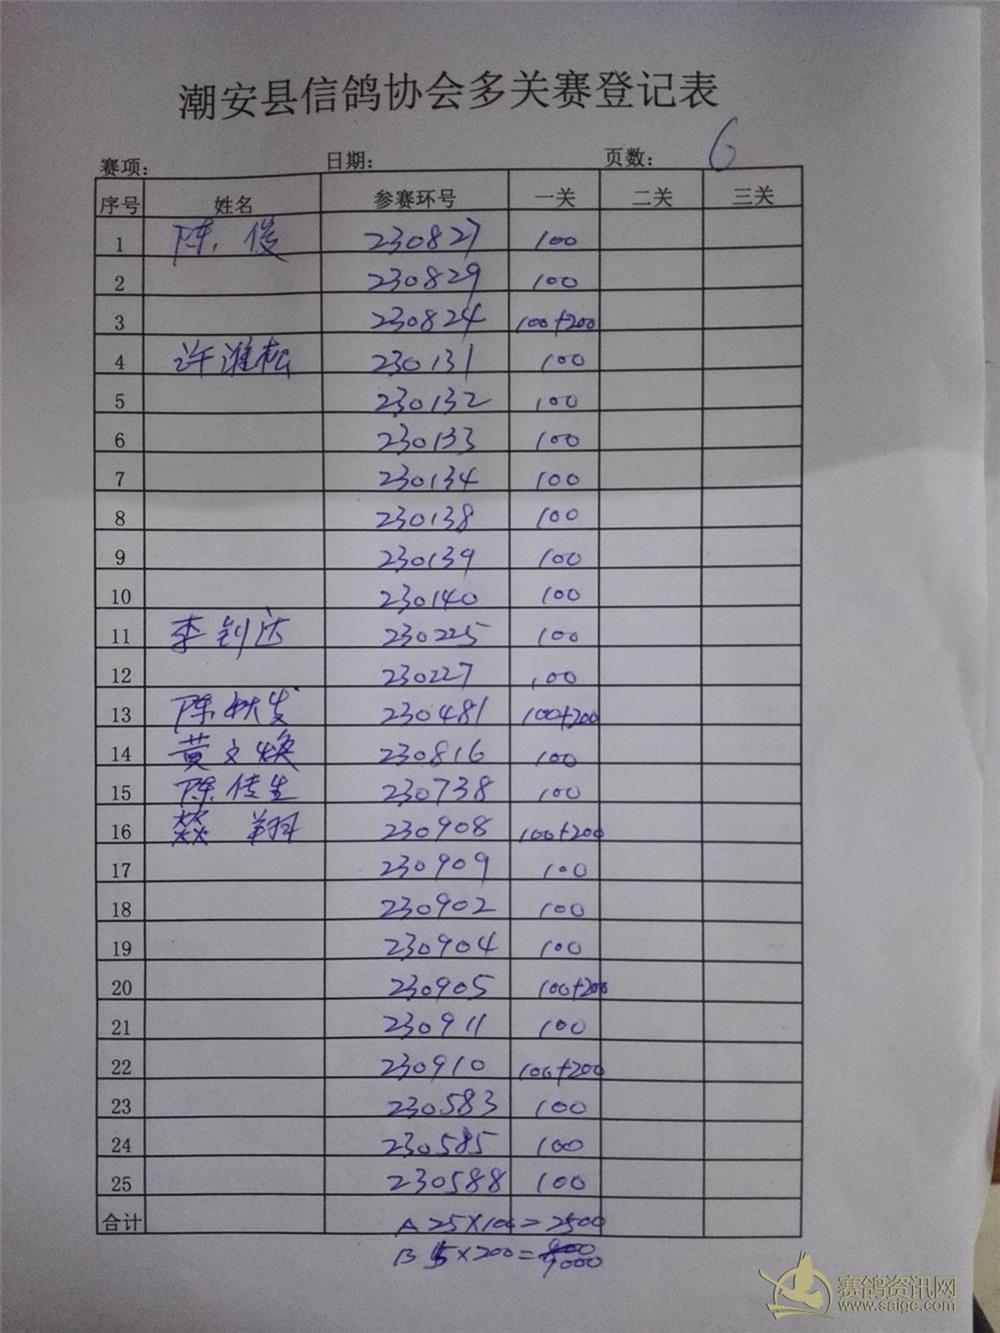 潮安县信鸽协会多关赛登记表
赛项: 日期: 页数: 6
序号 姓名 参赛环号 一关 二关 三关
1 陈俊 230827 100
2 230829 100
3 230824 100+200
4 许淮松 230131 100
5 230132 100
6 230133 100
7 230134 100
8 230138 100
9 230139 100
10 230140 100
11 李钊达 230225 100
12 230227 100
13 陈 230481 100+200
14 黄文焕 230816 100
15 陈传生 230738 100
16 燚翔 230908 100+200
17 230909 100
18 230902 100
19 230904 100
20 230905 100+200
21 230911 100
22 230910 100+200
23 230583 100
24 230585 100
25 230588 100
合计 A 25×100=2500
B 5×200=1000
赛鸽资讯网
www.saige.com